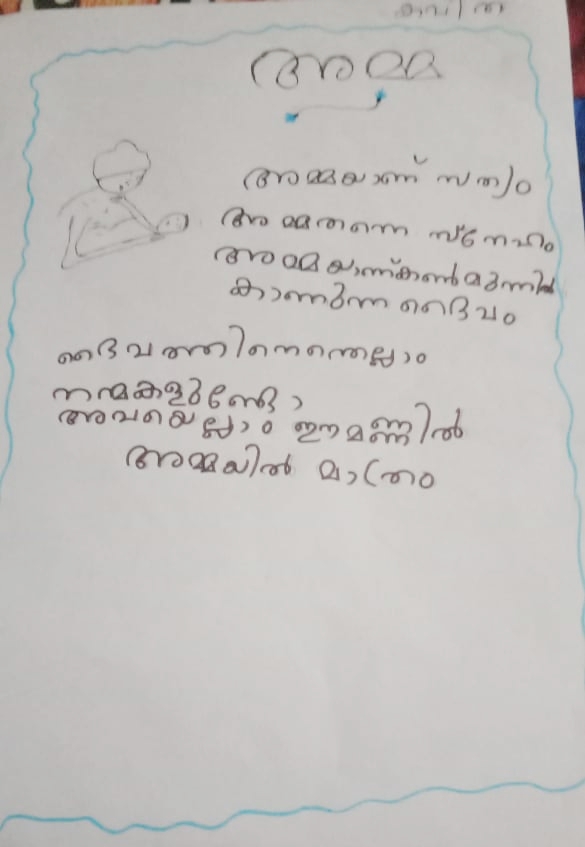 കവിത
അമ്മ
അമ്മയാണ് സത്യം
അമ്മതന്നെ സ്നേഹം
അമ്മയാണ്കൺമുന്നിൽ
കാണുന്ന ദൈവം
ദൈവത്തിനെന്തെല്ലാം
നന്മകളുണ്ടോ
അവയെല്ലാം ഈ മണ്ണിൽ
അമ്മയിൽ മാത്രം